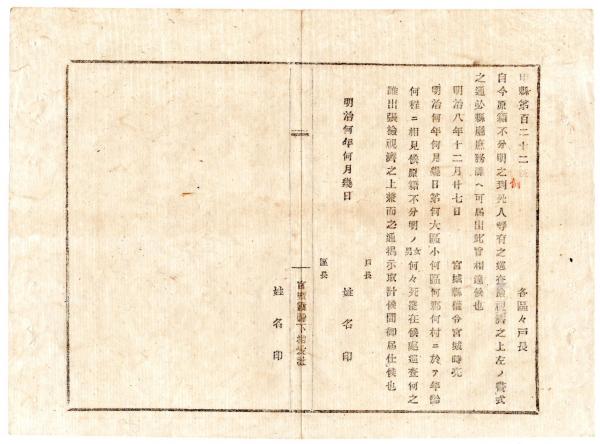 甲縣第百二十二號
各區々戸長
自今原籍不分明之到死人等有之巡査檢視濟之上左ノ書式
之通必縣廳庶務課ヘ可届出此旨相達候也
明治八年十二月廿七日 宮城縣權令宮城時亮
明治何年何月幾日第何大區小何區何郡何村ニ於テ年齢
何程ニ相見候原籍不分明ノ男女何々死罷在候處巡査何之
誰出張檢視濟之上兼而之通掲示取計候間御届仕候也
戸長
明治何年何月幾日 姓名印
區長
姓名印
宮城縣